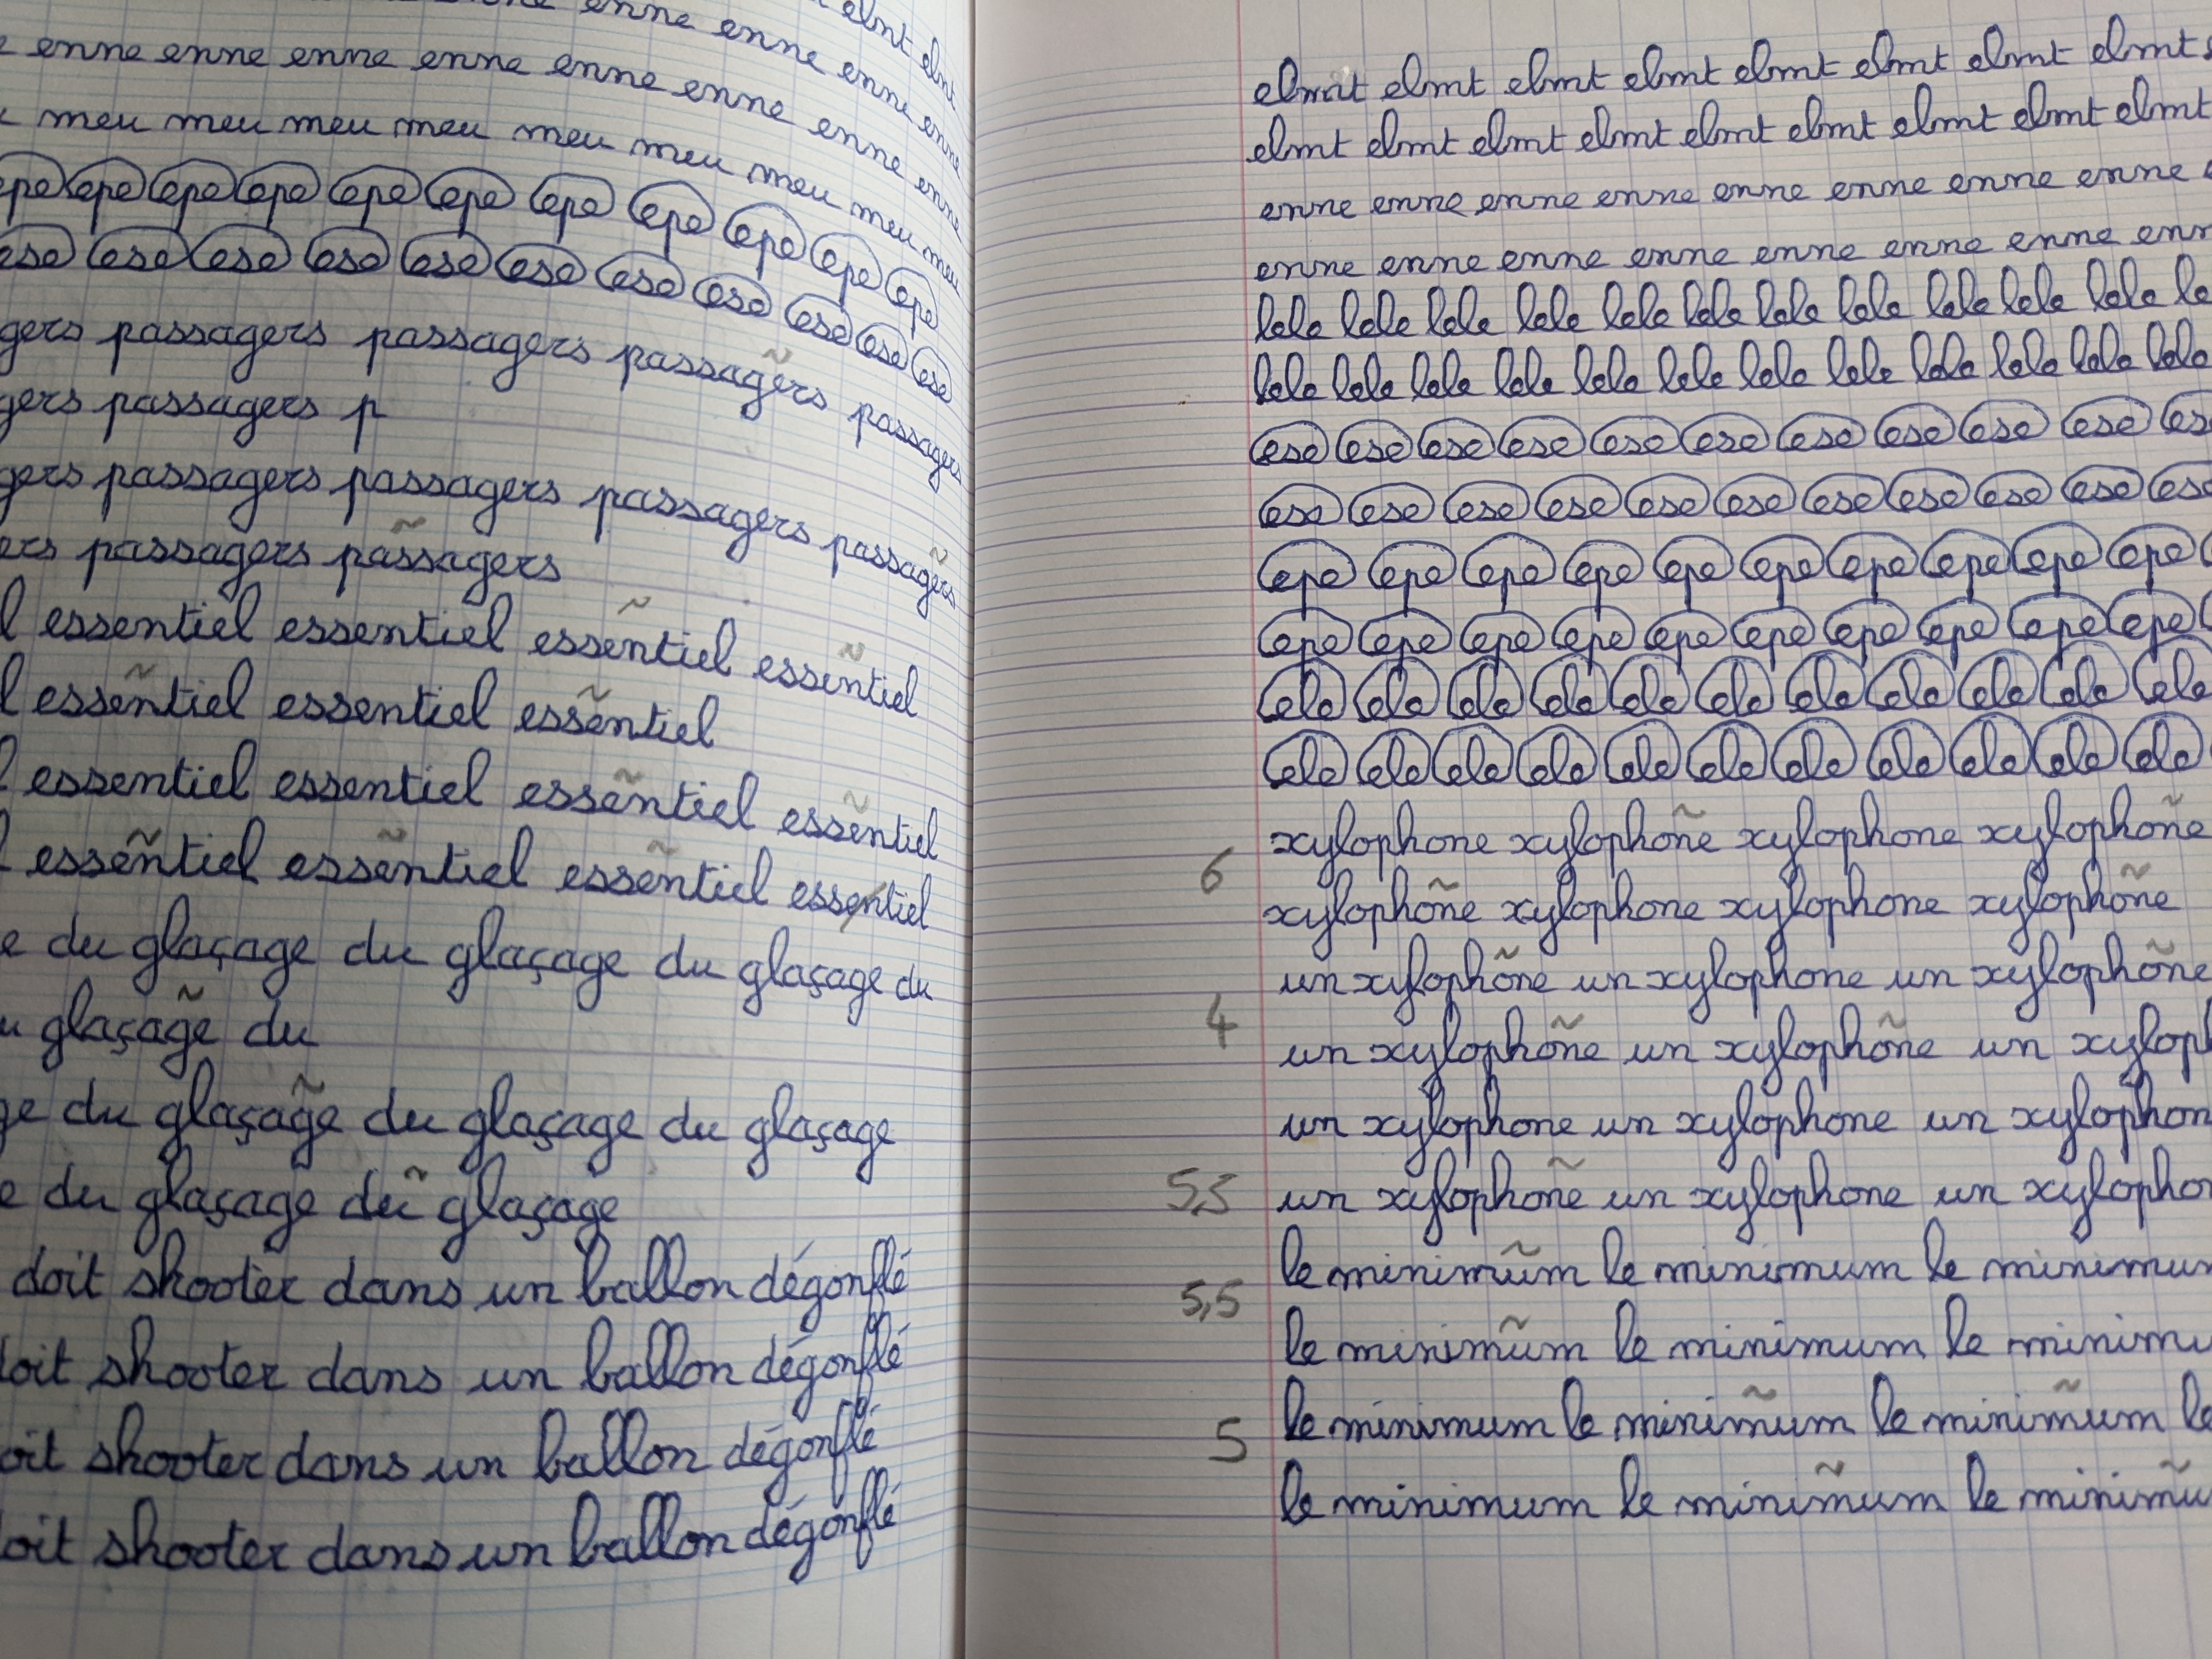 elmt elmt
enne enne enne enne
enne enne enne enne enne enne enne enne enne
meu meu meu meu meu meu meu meu meu
epe epe epe epe epe epe epe epe epe epe epe
ese ese ese ese ese ese ese ese ese ese ese
gers passagers passagers passagers passagers
gers passagers p
gers passagers passagers passagers passagers
ers passagers passagers
l essentiel essentiel essentiel essentiel
l essentiel essentiel essentiel
l essentiel essentiel essentiel essentiel
l essentiel essentiel essentiel essentiel
e du glaçage du glaçage du glaçage du
u glaçage du
ge du glaçage du glaçage du glaçage
e du glaçage du glaçage
doit shooter dans un ballon dégonflé
doit shooter dans un ballon dégonflé
oit shooter dans un ballon dégonflé
oit shooter dans un ballon dégonflé
elmt elmt elmt elmt elmt elmt elmt elmt
elmt elmt elmt elmt elmt elmt elmt elmt elmt
enne enne enne enne enne enne enne enne
enne enne enne enne enne enne enne enn
lele lele lele lele lele lele lele lele lele lele lele le
lele lele lele lele lele lele lele lele lele lele lele lele
ese ese ese ese ese ese ese ese ese ese es
ese ese ese ese ese ese ese ese ese ese ese
epe epe epe epe epe epe epe epe epe epe
epe epe epe epe epe epe epe epe epe epe
ele ele ele ele ele ele ele ele ele ele ele
ele ele ele ele ele ele ele ele ele ele ele
xylophone xylophone xylophone xylophone
6
xylophone xylophone xylophone xylophone
un xylophone un xylophone un xylophone
4
un xylophone un xylophone un xyloph
un xylophone un xylophone un xylophon
5,5 un xylophone un xylophone un xylophon
le minimum le minimum le minimum
5,5
le minimum le minimum le minimu
le minimum le minimum le minimum le
5
le minimum le minimum le minimu